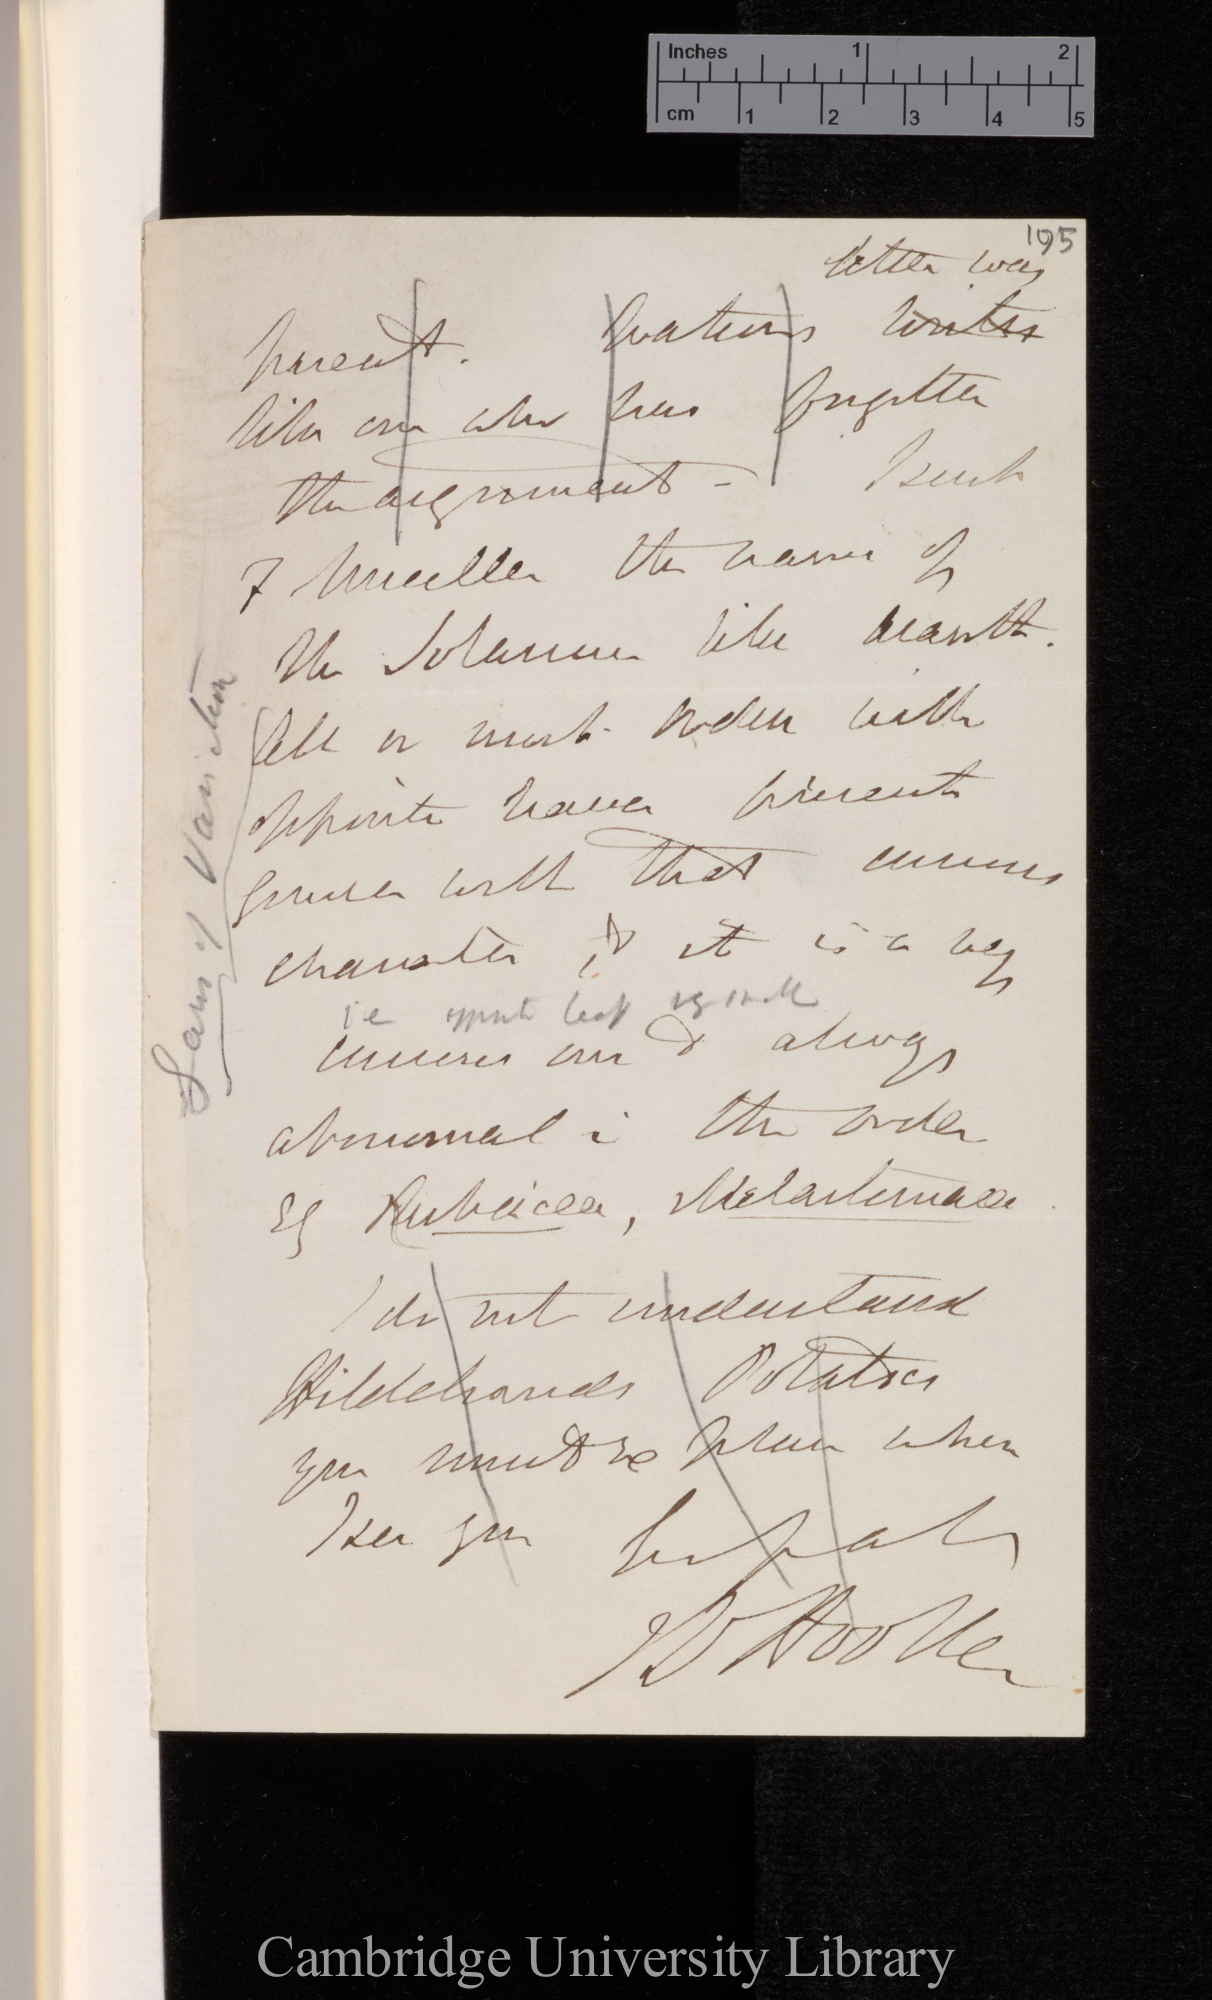 195
letter was
parent. Watsons writes
like one who has forgotten
the argument – I send
F Mueller the name of
the Solanum like Acanth.
All or most orders with
opposite leaves present
genera with that curious
character, & it is a very
i.e opposite leaf v small
curious one & always
abnormal in the order
Eg Rubiaceæ, Melastomaceæ.
I do not understand
Hildebrands Potatoes
you must explain when
I see you
J D Hooker
Laws of Variation
Inches 1 2
cm 1 2 3 4 5
Cambridge University Library